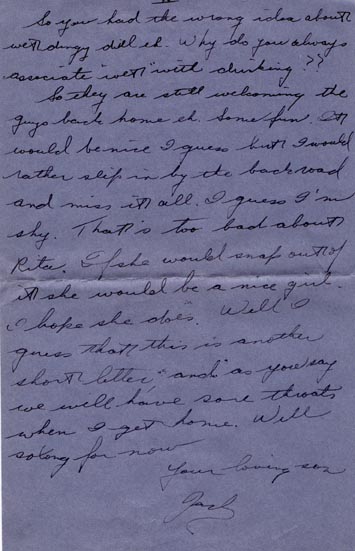 So you had the wrong idea about
wet dingy dill eh. Why do you always
associate "wet" with drinking??
So they are still welcoming the
guys back home eh. Some fun. It
would be nice I guess but I would
rather slip in by the back road
and miss it all. I guess I'm
shy. That's too bad about
Rita. If she would snap out of
it she would be a nice girl.
I hope she does. Well I
guess that this is another
short letter, "and" as you say
we will have sore throats
when I get home. Well
so long for now
Your loving son
Jack